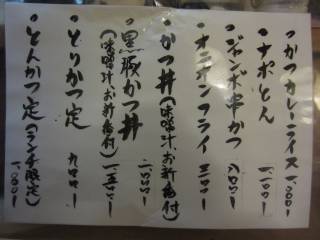 ・かつカレーライス 一、〇〇〇ー
・ナポとん 一、〇〇〇ー
・ジャンボ串かつ 八〇〇ー
・オニオンフライ 三〇〇ー
・かつ丼(味噌汁、お新香付) 一、〇〇〇ー
・黒豚かつ丼(味噌汁、お新香付) 一、五〇〇ー
・とりかつ定 九〇〇ー
・とんかつ定(ランチ限定) 一、〇〇〇ー